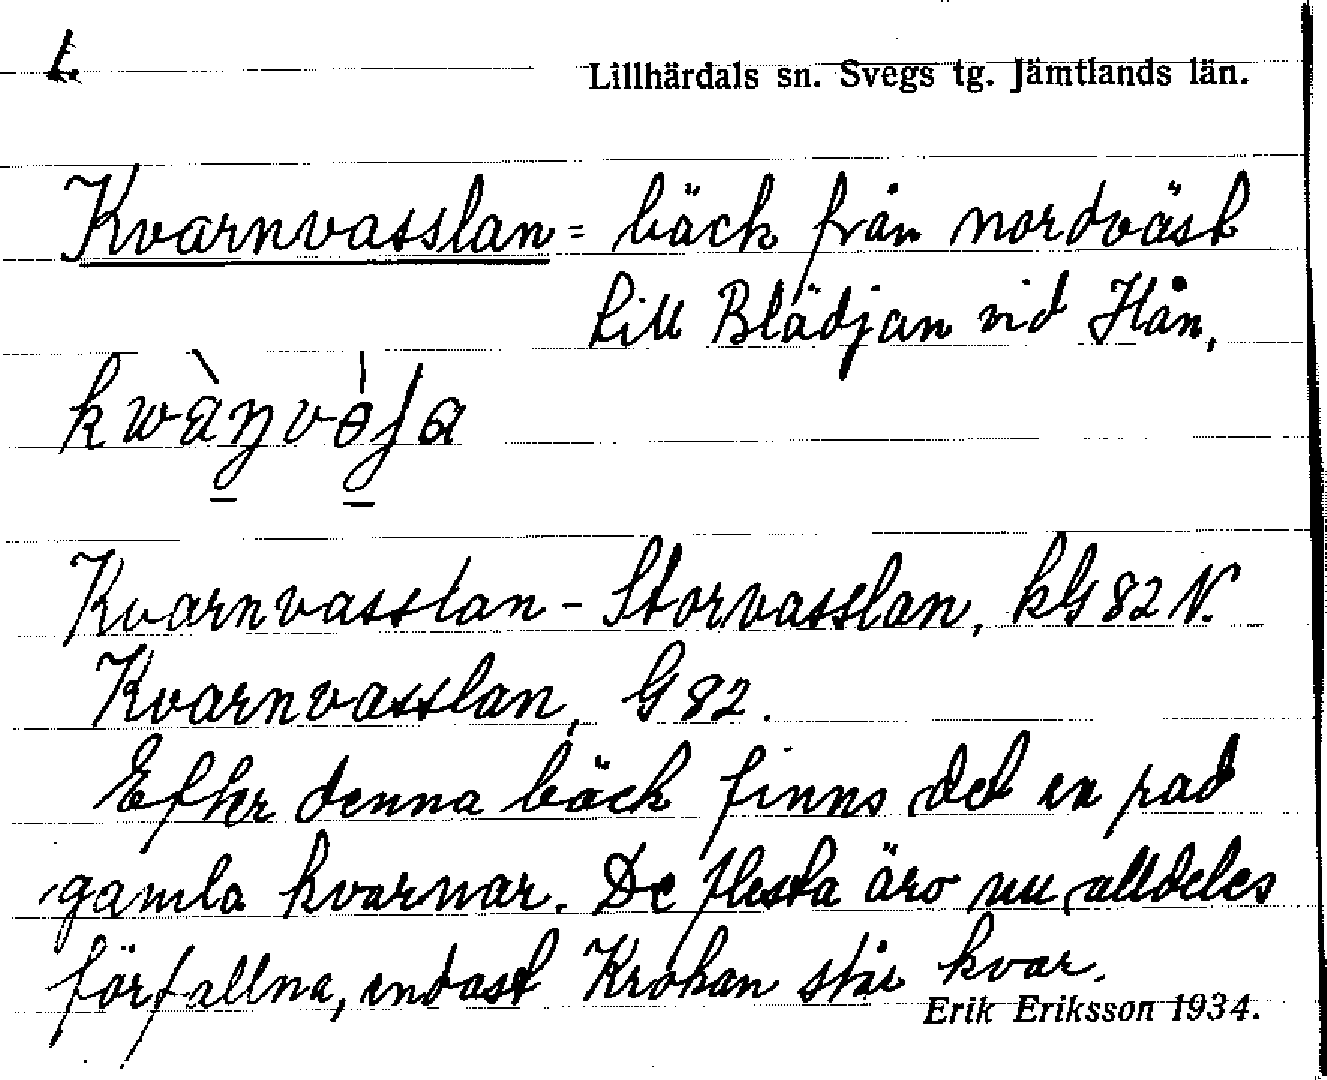 L.
Lillhärdals sn. Svegs tg. Jämtlands län.
Kvarnvasslan = bäck från nordväst
till Blädjan vid Hån,
Kvarnvasslan - Storvasslan, kG 82 N.
Kvarnvasslan, G 82.
Efter denna bäck finns det en rad
gamla kvarnar. De flesta äro nu alldeles
förfallna, endast Krokan står kvar.
Erik Eriksson 1934.